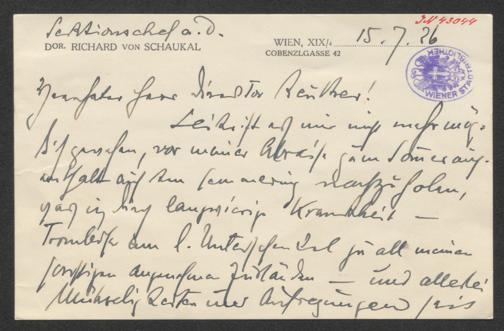 Sektionschef a. D.
DOR. RICHARD VON SCHAUKAL
WIEN, XIX/4
15. 7. 26
COBENZLGASSE 42
JN 43044
WIENER STADTBIBLIOTHEK
Verehrter Herr Direktor
Leider ist es mir nicht mehr mög-
gewesen, vor meiner Abreise zum Sommerauf-
enthalt auf dem Semmering nachzuholen,
was ich durch langwierige Krankheit —
Thrombose am l. Unterschenkel zu all meinen
sonstigen angenehmen Zuständen — und allerlei
Mühseligkeiten und Aufregungen